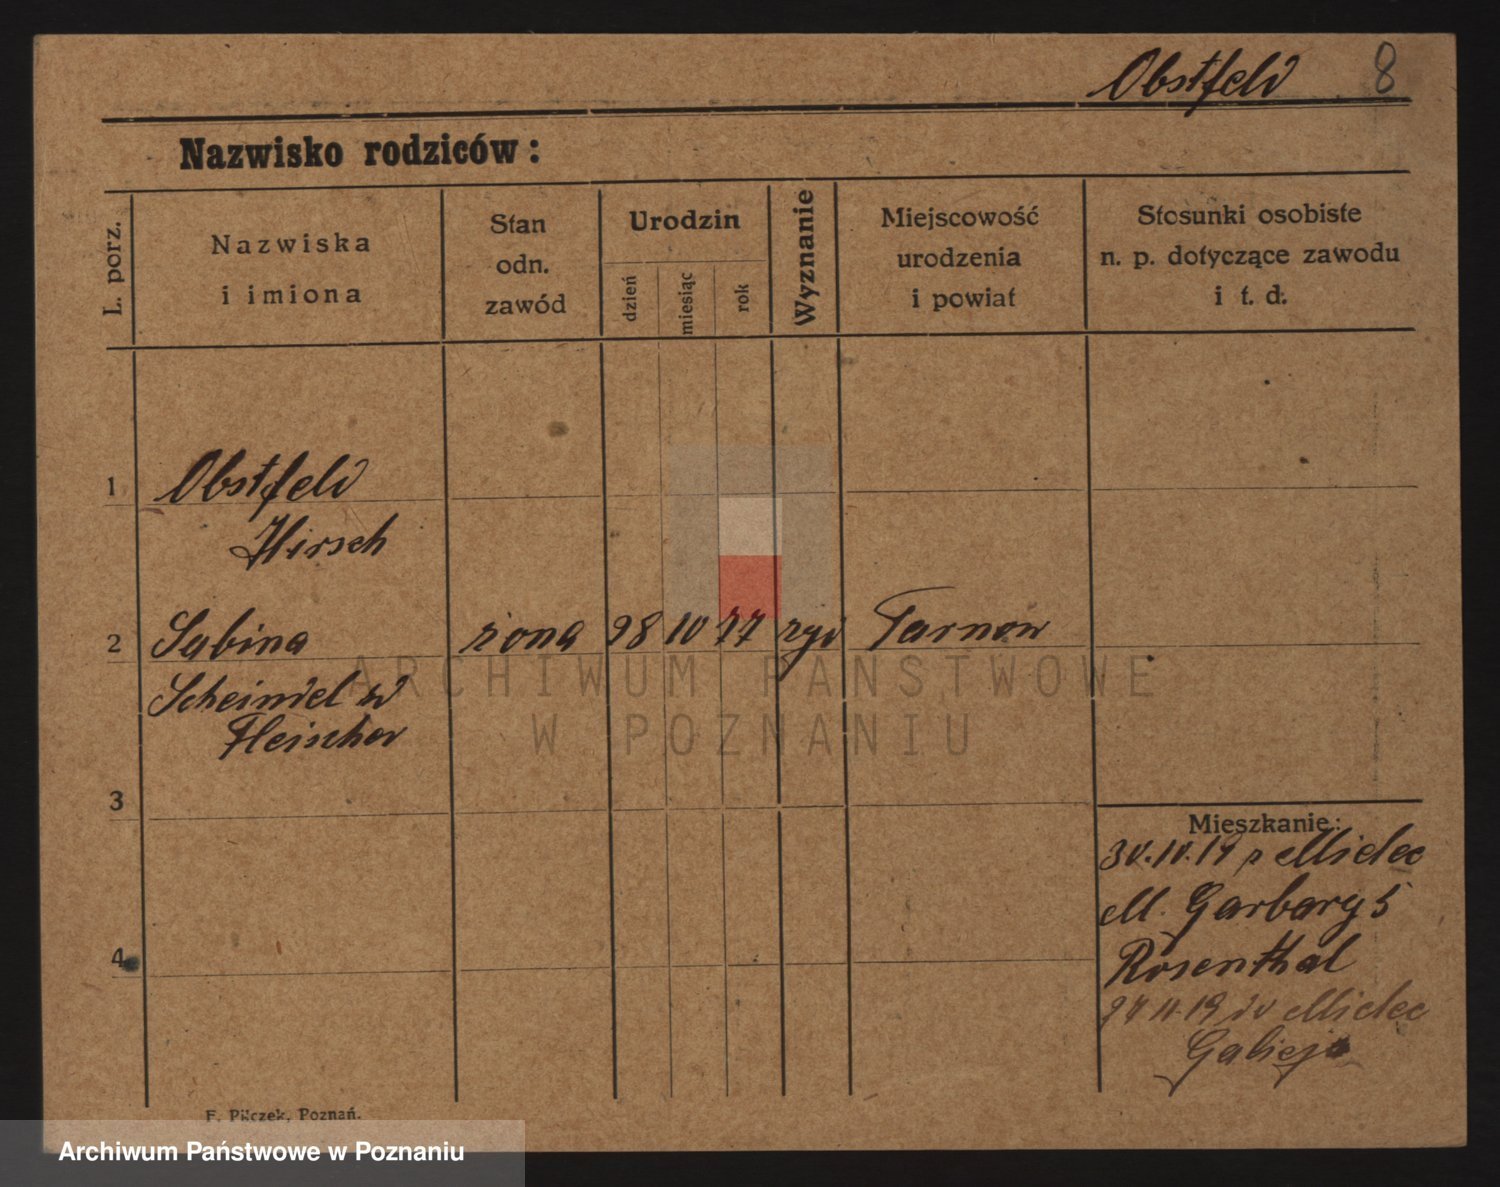 Obstfeld 8
Nazwisko rodziców:
L. porz.
Nazwiska
i imiona
Stan
odn.
zawód
Urodzin
dzień
miesiąc
rok
Wyznanie
Miejscowość
urodzenia
i powiat
Stosunki osobiste
n. p. dotyczące zawodu
i t. d.
1 Obstfeld
Hirsch
2 Sabina żona 28 10 77 żyd Tarnow
Scheindel
Fleischer
3
4
Mieszkanie:
30.10.19 z Mielec
M. Garbary 5
Rosenthal
11.19 do Mielec
F. Pilczek, Poznań.
ARCHIWUM PAŃSTWOWE
W POZNANIU
Archiwum Państwowe w Poznaniu